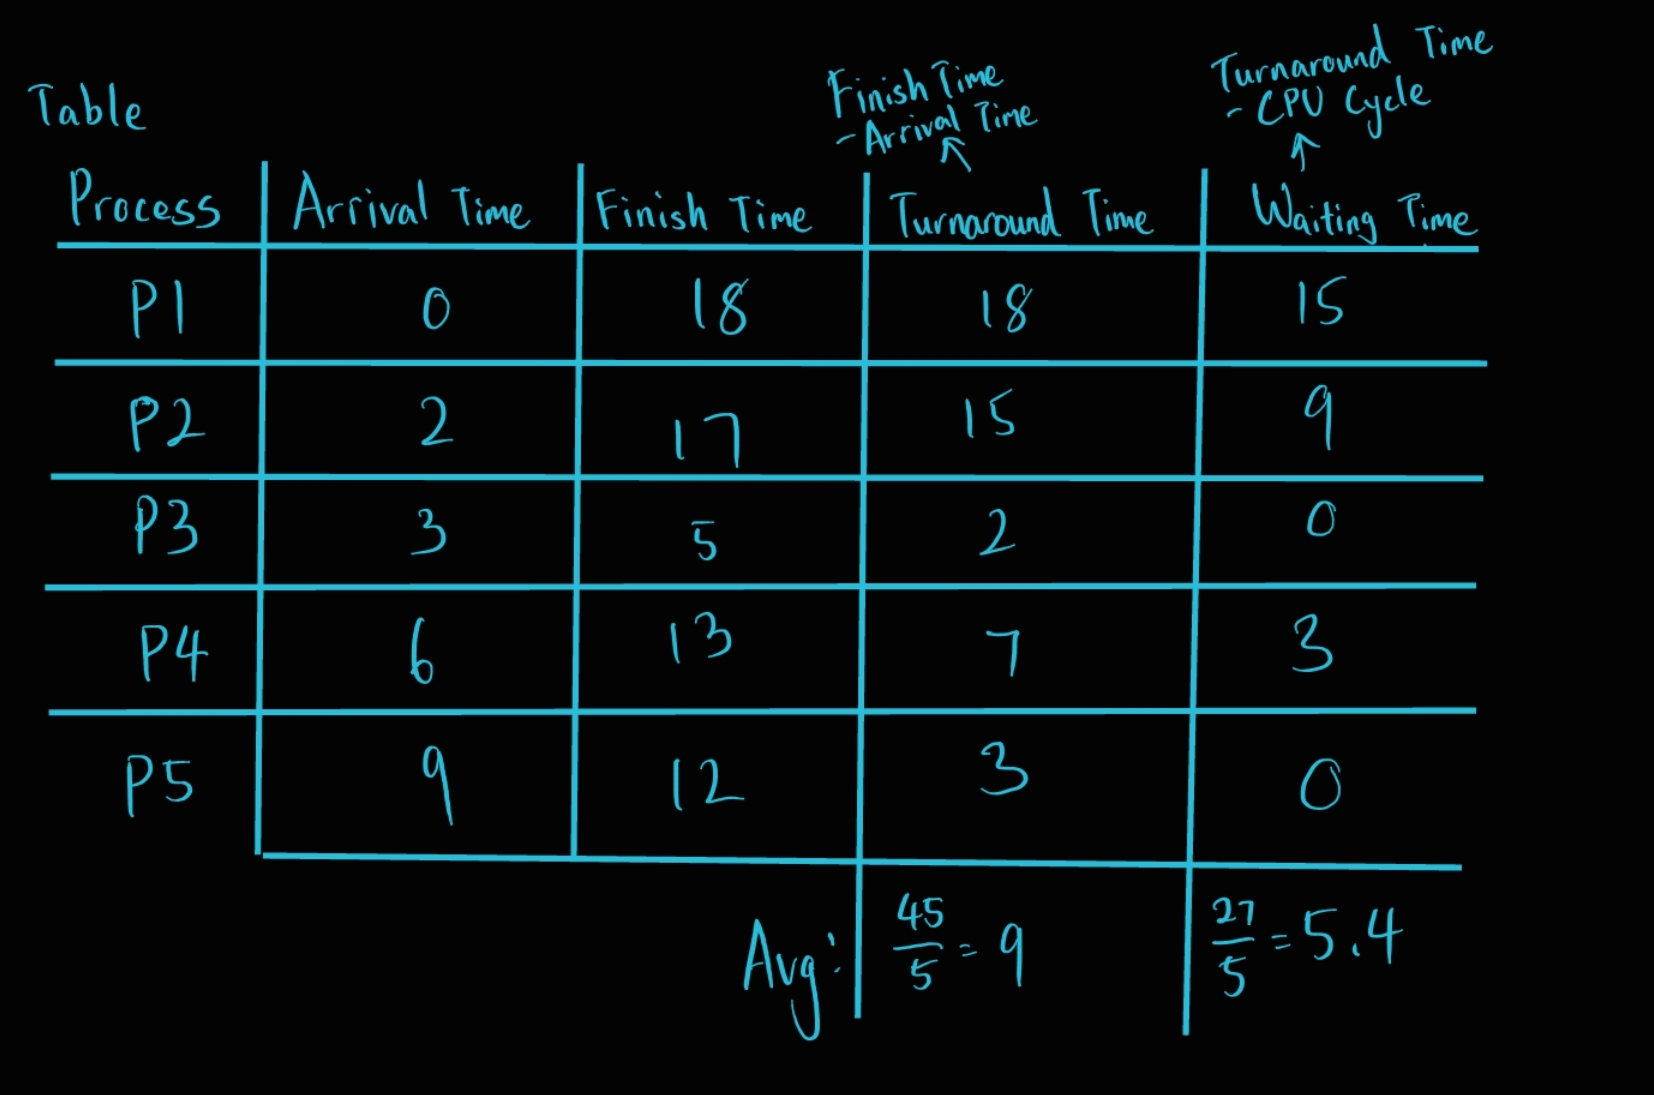 Table
Finish Time
- Arrival Time
Turnaround Time
- CPU Cycle
Process Arrival Time Finish Time Turnaround Time Waiting Time
P1 0 18 18 15
P2 2 17 15 9
P3 3 5 2 0
P4 6 13 7 3
P5 9 12 3 0
Avg: 45/5 = 9 27/5 = 5.4